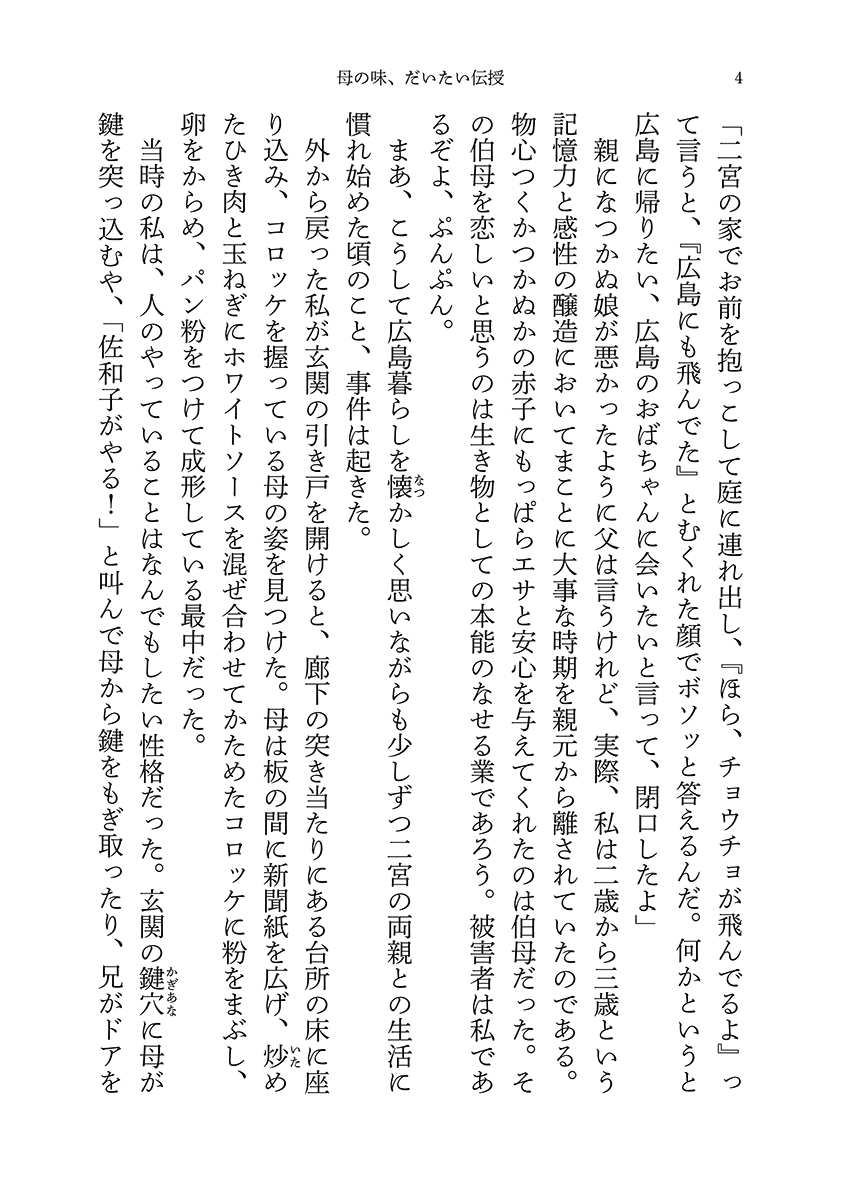 母の味、だいたい伝授
4
「二宮の家でお前を抱っこして庭に連れ出し、『ほら、チョウチョが飛んでるよ』っ
て言うと、『広島にも飛んでた』とむくれた顔でボソッと答えるんだ。何かというと
広島に帰りたい、広島のおばちゃんに会いたいと言って、閉口したよ」
親になつかぬ娘が悪かったように父は言うけれど、実際、私は二歳から三歳という
記憶力と感性の醸造においてまことに大事な時期を親元から離されていたのである。
物心つくかつかぬかの赤子にもっぱらエサと安心を与えてくれたのは伯母だった。そ
の伯母を恋しいと思うのは生き物としての本能のなせる業であろう。被害者は私であ
るぞよ、ぷんぷん。
まあ、こうして広島暮らしを懐かしく思いながらも少しずつ二宮の両親との生活に
なつ
慣れ始めた頃のこと、事件は起きた。
外から戻った私が玄関の引き戸を開けると、廊下の突き当たりにある台所の床に座
り込み、コロッケを握っている母の姿を見つけた。母は板の間に新聞紙を広げ、炒め
いた
たひき肉と玉ねぎにホワイトソースを混ぜ合わせてかためたコロッケに粉をまぶし、
卵をからめ、パン粉をつけて成形している最中だった。
当時の私は、人のやっていることはなんでもしたい性格だった。玄関の鍵穴に母が
かぎあな
鍵を突っ込むや、「佐和子がやる！」と叫んで母から鍵をもぎ取ったり、兄がドアを